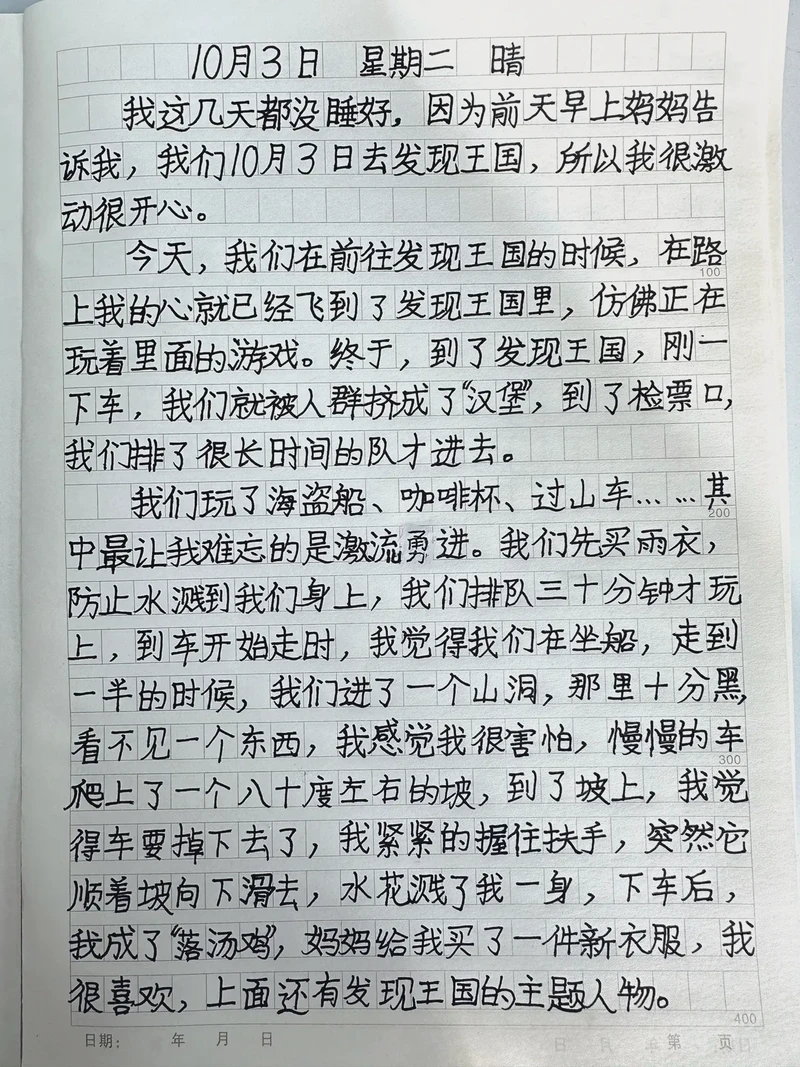 10月3日 星期二 晴
我这几天都没睡好，因为前天早上妈妈告
诉我，我们10月3日去发现王国，所以我很激
动很开心。
今天，我们在前往发现王国的时候，在路
100
上我的心就已经飞到了发现王国里，仿佛正在
玩着里面的游戏。终于，到了发现王国，刚一
下车，我们就被人群挤成了“汉堡”，到了检票口，
我们排了很长时间的队才进去。
我们玩了海盗船、咖啡杯、过山车……其
200
中最让我难忘的是激流勇进。我们先买雨衣，
防止水溅到我们身上，我们排队三十分钟才玩
上，到车开始走时，我觉得我们在坐船，走到
一半的时候，我们进了一个山洞，那里十分黑，
看不见一个东西，我感觉我很害怕，慢慢的车
300
爬上了一个八十度左右的坡，到了坡上，我觉
得车要掉下去了，我紧紧的握住扶手，突然它
顺着坡向下滑去，水花溅了我一身，下车后，
我成了“落汤鸡”，妈妈给我买了一件新衣服，我
很喜欢，上面还有发现王国的主题人物。
400
日期： 年 月 日 第 页